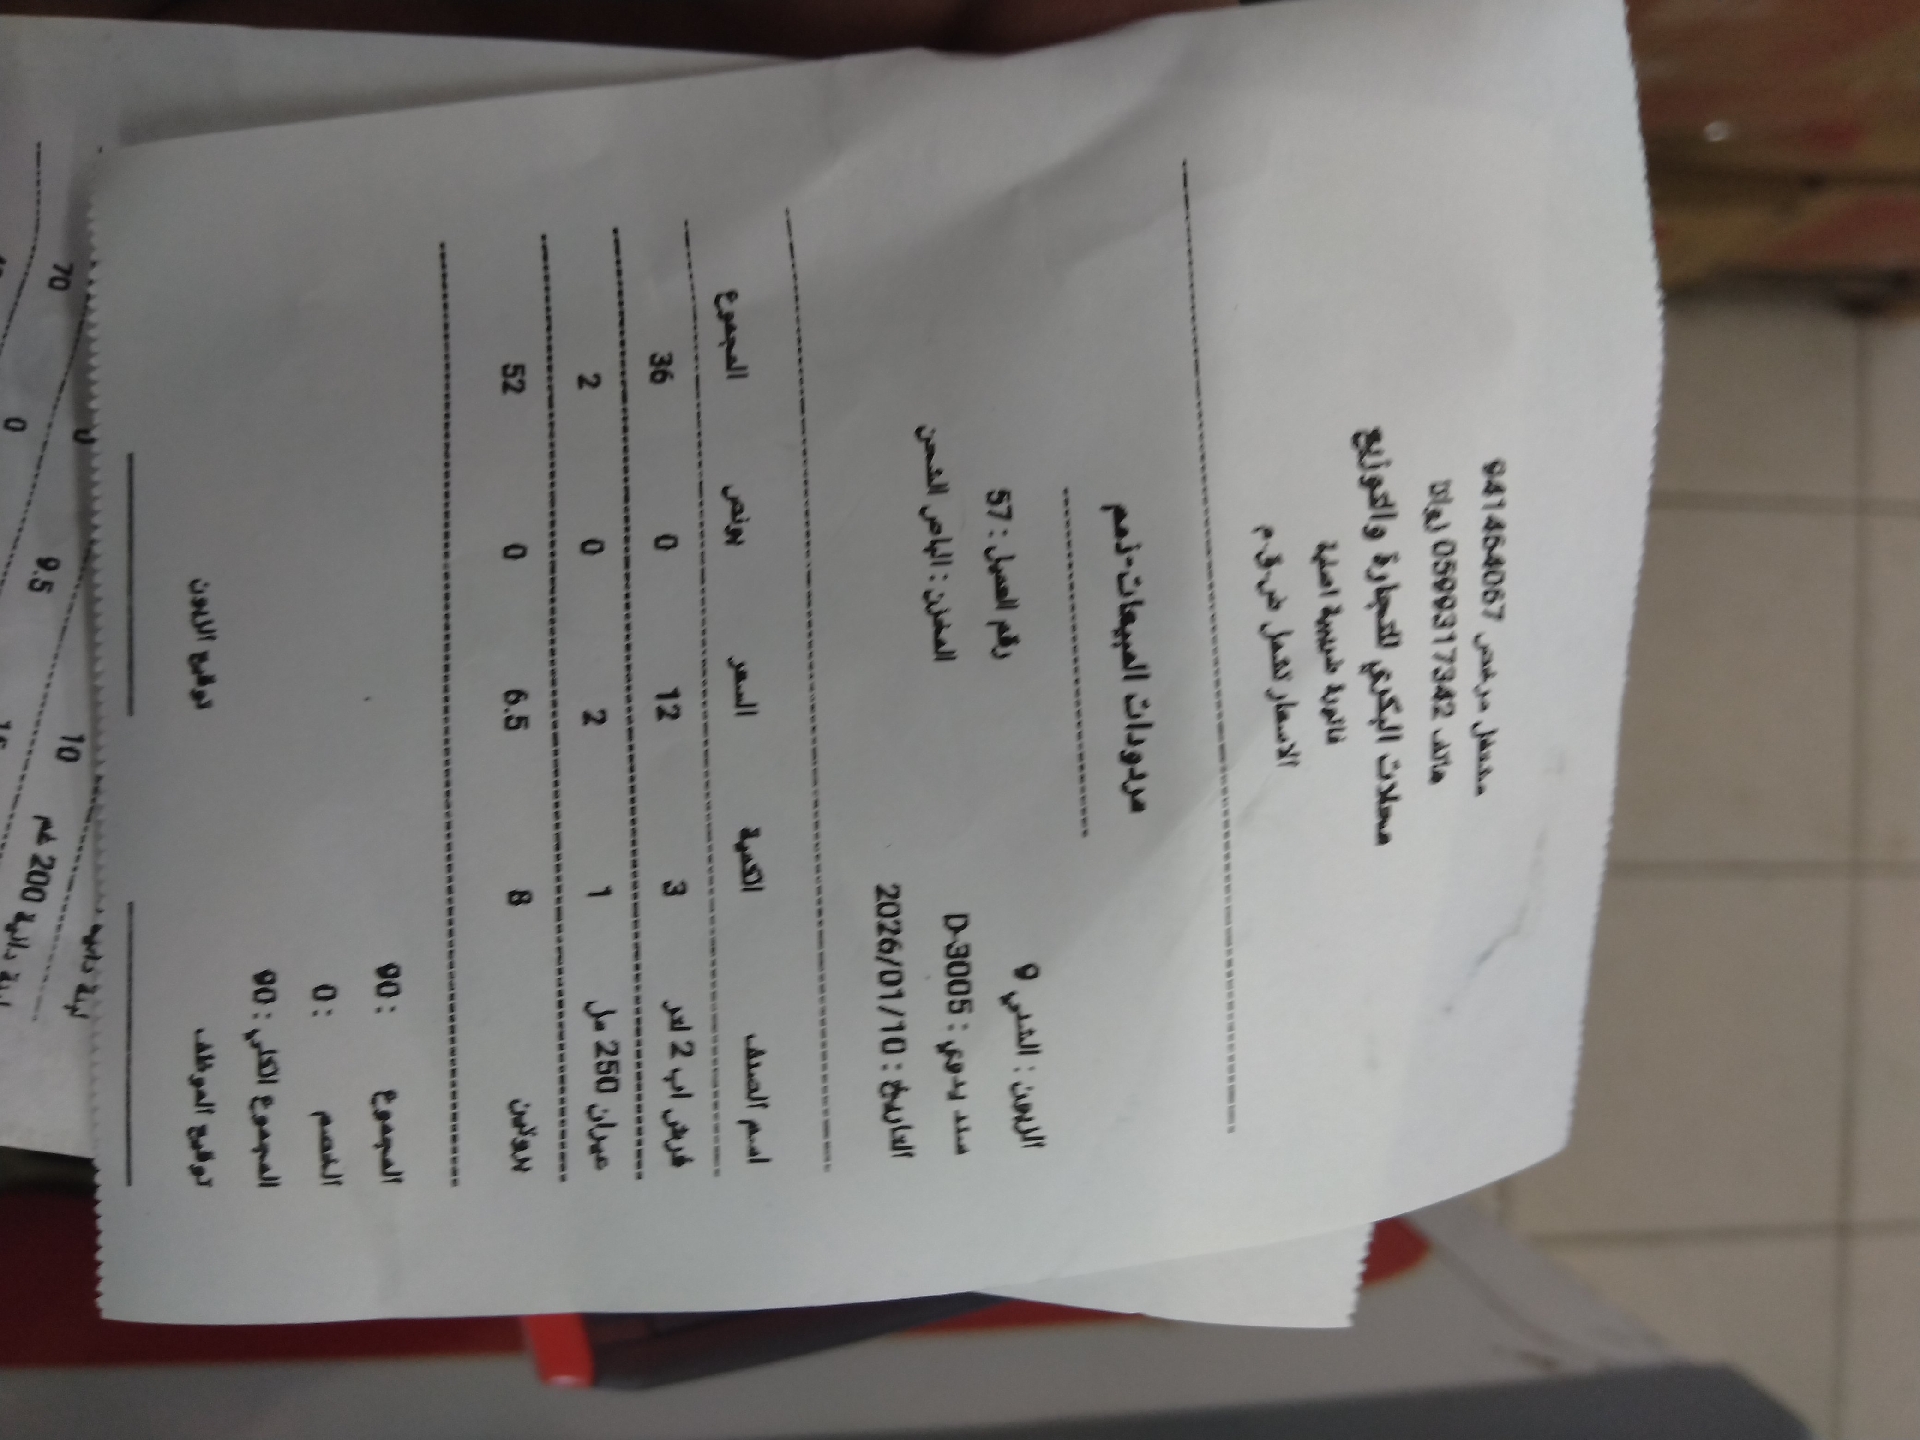 مشتغل مرخص 941464067
هاتف 0599317342 لواتا
محلات البكري للتجارة والتوزيع
فاتورة ضريبية اصلية
الاسعار تشمل ض.ق.م
مردودات المبيعات-ذمم
الزبون : الشلبي 9 رقم العميل : 57
سند يدوي : D-3005 المخزن : الباص الشحن
التاريخ : 2026/01/10
اسم الصنف الكمية السعر بونص المجموع
فرش اب 2 لتر 3 12 0 36
ميزان 250 مل 1 2 0 2
بروتين 8 6.5 0 52
المجموع : 90
الخصم : 0
المجموع الكلي : 90
توقيع الموظف توقيع الزبون
10 70
200 غم 9.5 0